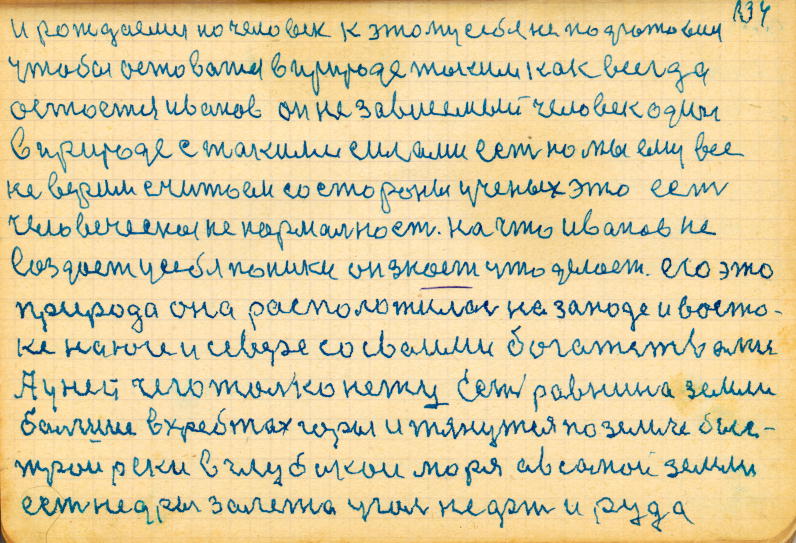 134
и рождаеми но человек к этому себя не подготовил
чтобы остоватся в природе таким как всегда
остоется иванов он не зависемый человек один
в природе с такими силами ест но мы ему все
не верим считоем со стороны ученых это ест
человеческоя не нормалност. на что иванов не
создает у себя поники он зноет что делоет. его это
природа она расположилас на западе и восто-
ке на юге и севере со сваими богатствами
А у ней чего толко нету Ест равнина земли
балшие в хребтах горы и тянутся по земле быс-
трой реки в глубокои моря а в самой земли
ест недры залежа угол недрт и руда